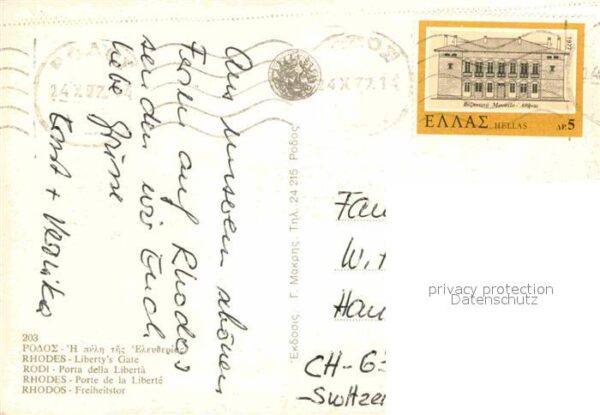 Aus unseren schönen
Ferien auf Rhodos
senden wir Euch
liebe Grüsse
Ernst + Veronika
203
ΡΟΔΟΣ - Ἡ πύλη τῆς Ἐλευθερίας
RHODES - Liberty's Gate
RODI - Porta della Libertà
RHODES - Porte de la Liberté
RHODOS - Freiheitstor
Ἐκδοσις Γ. Μακρῆς, Τηλ. 24 215 Ρόδος
ΡΟΔΟΣ
24 X 77.14
24 X 77.14
1977
Βυζαντινό Μουσεῖο - Ἀθῆναι
ΕΛΛΑΣ HELLAS ΔΡ. 5
Fam
W.
Hau
CH-63
Switzer
privacy protection
Datenschutz